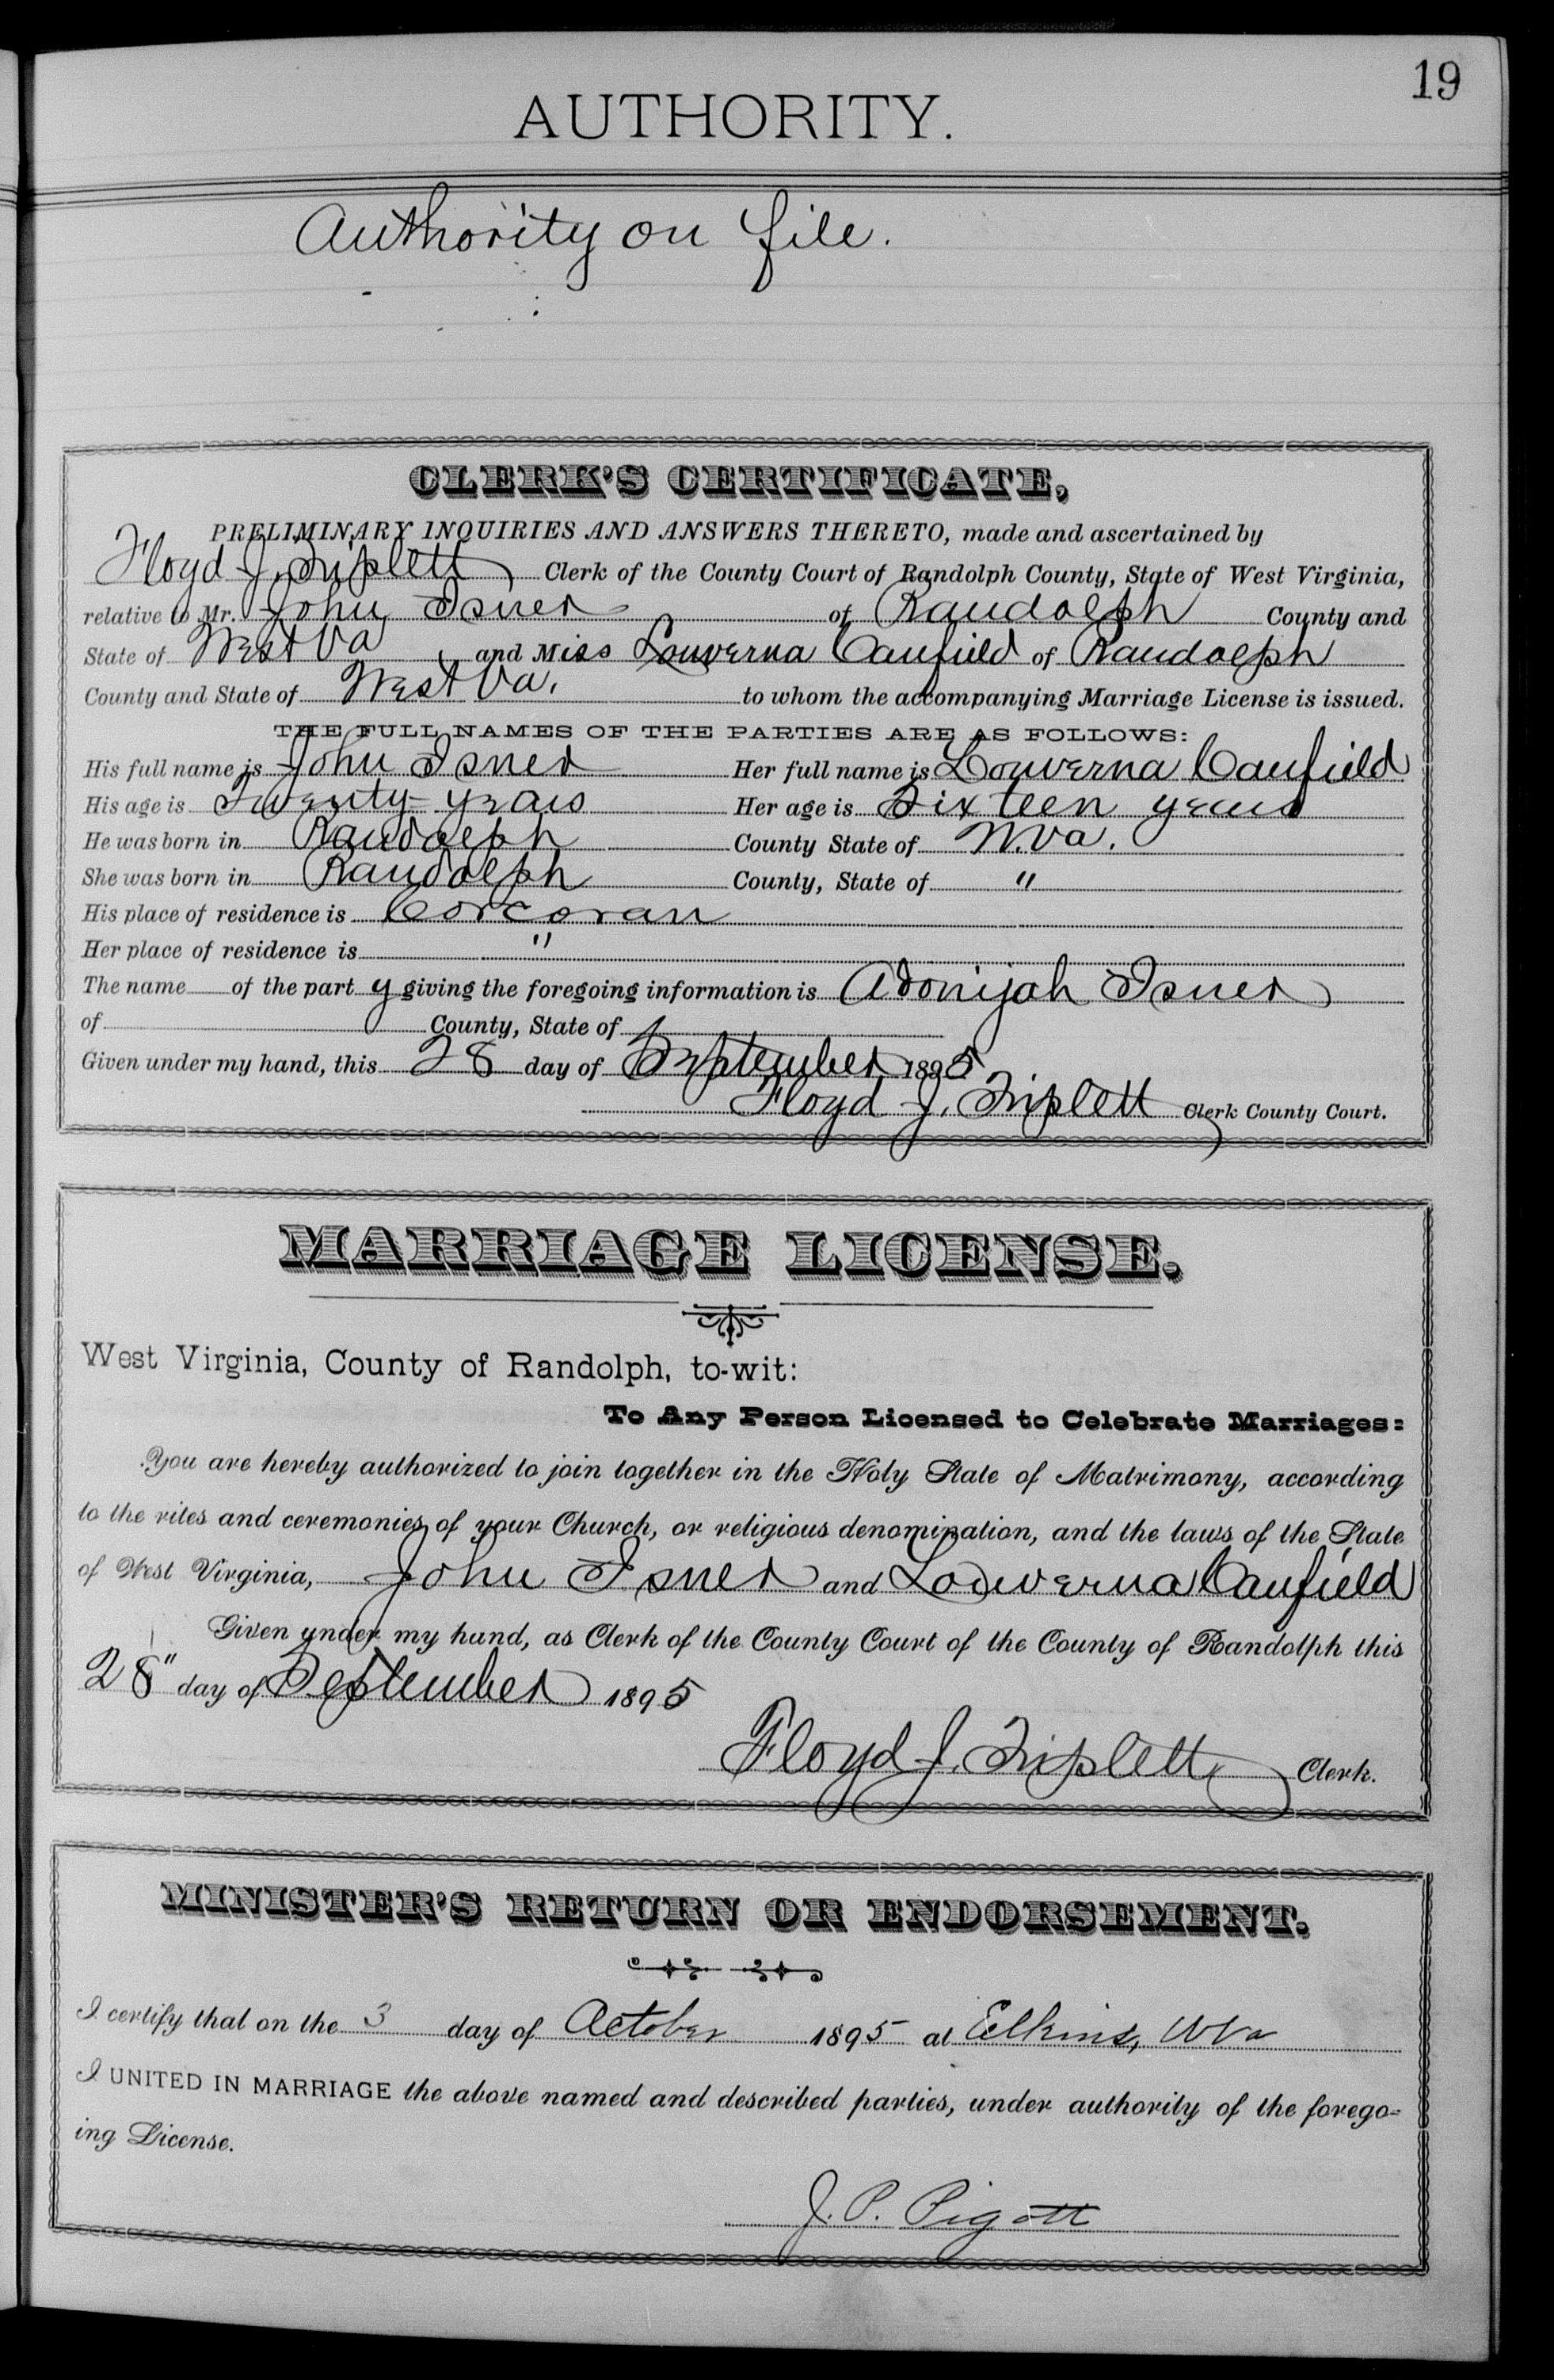 19
AUTHORITY.
Authority on file.
CLERK'S CERTIFICATE,
PRELIMINARY INQUIRIES AND ANSWERS THERETO, made and ascertained by
Floyd J. Triplett Clerk of the County Court of Randolph County, State of West Virginia,
relative to Mr. John Isner of Randolph County and
State of West Va and Miss Louverna Canfield of Randolph
County and State of West Va. to whom the accompanying Marriage License is issued.
THE FULL NAMES OF THE PARTIES ARE AS FOLLOWS:
His full name is John Isner Her full name is Louverna Canfield
His age is Twenty years Her age is Sixteen years
He was born in Randolph County State of W.Va.
She was born in Randolph County, State of "
His place of residence is Corcoran
Her place of residence is "
The name of the party giving the foregoing information is Adonijah Isner
of County, State of
Given under my hand, this 28 day of September 1895
Floyd J. Triplett Clerk County Court.
MARRIAGE LICENSE.
West Virginia, County of Randolph, to-wit:
To Any Person Licensed to Celebrate Marriages:
You are hereby authorized to join together in the Holy State of Matrimony, according
to the rites and ceremonies of your Church, or religious denomination, and the laws of the State
of West Virginia, John Isner and Louverna Canfield
Given under my hand, as Clerk of the County Court of the County of Randolph this
28" day of September 1895
Floyd J. Triplett Clerk.
MINISTER'S RETURN OR ENDORSEMENT.
I certify that on the 3 day of October 1895 at Elkins, W Va
I UNITED IN MARRIAGE the above named and described parties, under authority of the forego-
ing License.
J. P. Pigott